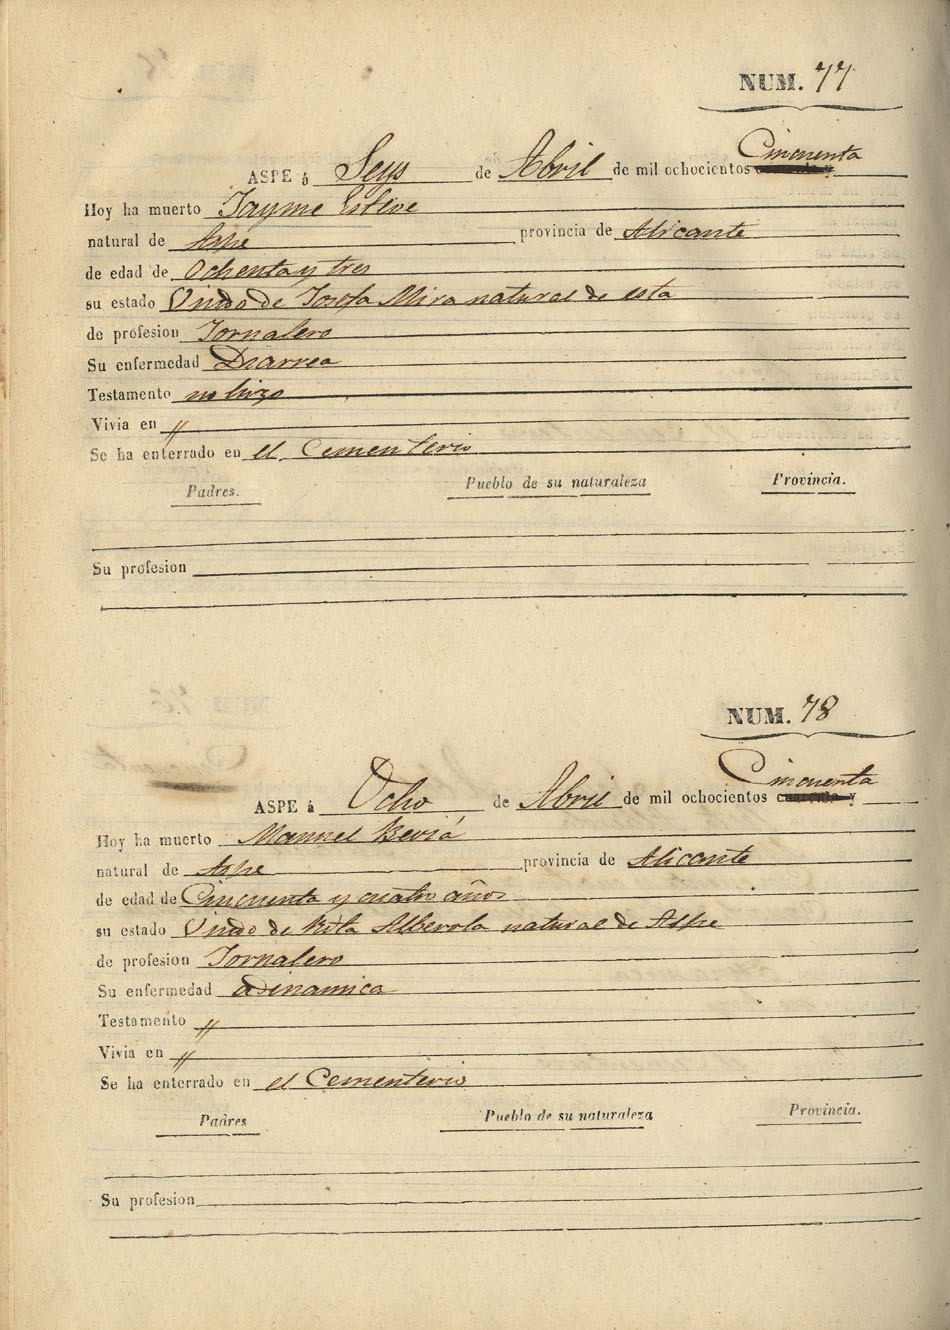 NUM. 77
ASPE á Seys de Abril de mil ochocientos Cincuenta
Hoy ha muerto Jayme Esteve
natural de Aspe provincia de Alicante
de edad de Ochenta y tres
su estado Viudo de Josefa Mira natural de esta
de profesion Jornalero
Su enfermedad Diarrea
Testamento no hizo
Vivia en "
Se ha enterrado en el Cementerio
Padres. Pueblo de su naturaleza Provincia.
Su profesion
NUM. 78
ASPE á Ocho de Abril de mil ochocientos Cincuenta
Hoy ha muerto Manuel Beviá
natural de Aspe provincia de Alicante
de edad de Cincuenta y cuatro años
su estado Viudo de Rita Alberola natural de Aspe
de profesion Jornalero
Su enfermedad adinamica
Testamento "
Vivia en "
Se ha enterrado en el Cementerio
Padres Pueblo de su naturaleza Provincia.
Su profesion